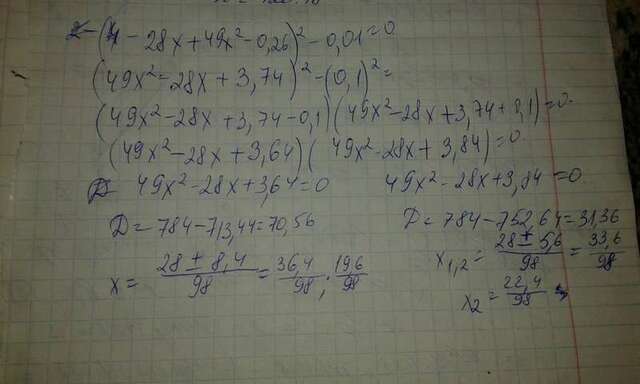 (4 - 28x + 49x² - 0,26)² - 0,01 = 0
(49x² - 28x + 3,74)² - (0,1)² =
(49x² - 28x + 3,74 - 0,1)(49x² - 28x + 3,74 + 0,1) = 0
(49x² - 28x + 3,64)(49x² - 28x + 3,84) = 0
49x² - 28x + 3,64 = 0 49x² - 28x + 3,84 = 0
D = 784 - 713,44 = 70,56 D = 784 - 752,64 = 31,36
x = 28 ± 8,4 / 98 = 36,4 / 98 ; 19,6 / 98 x₁,₂ = 28 ± 5,6 / 98 = 33,6 / 98
x₂ = 22,4 / 98